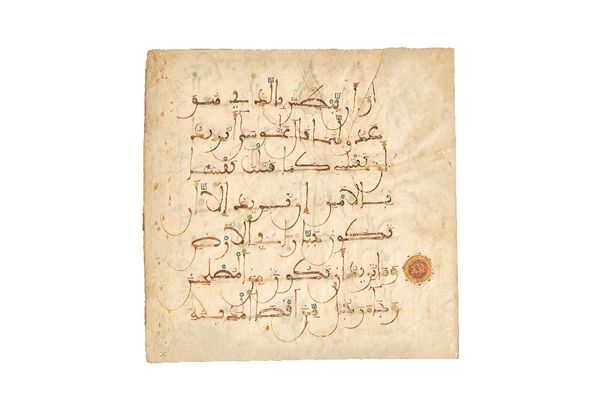 أن يبطش بالذي هو
عدو لهما قال يموسى أتريد
أن تقتلني كما قتلت نفسا
بالأمس إن تريد إلا أن
تكون جبارا في الأرض
وما تريد أن تكون من المصلحين
وجاء رجل من أقصا المدينة